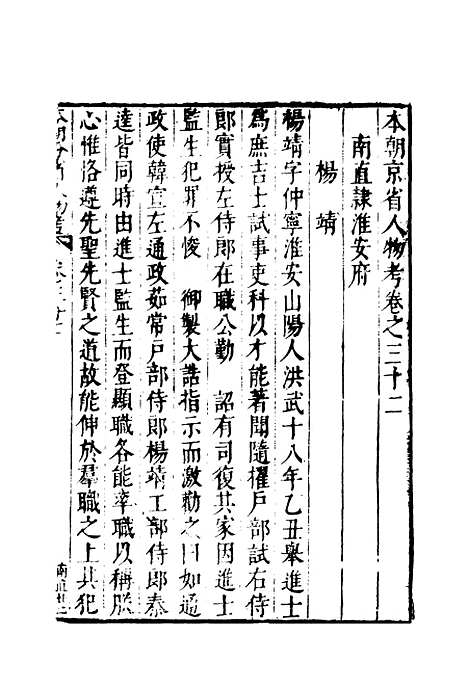 本朝京省人物考卷之三十二
南直隷淮安府
楊靖
楊靖字仲寧淮安山陽人洪武十八年乙丑舉進士
爲庶吉士試事吏科以才能著聞隨擢戶部試右侍
郎實授左侍郎在職公勤 詔有司復其家因進士
監生犯罪不悛 御製大誥指示而激勸之曰如通
政使韓宜左通政茹常戶部侍郎楊靖工部侍郎秦
逵皆同時由進士監生而登顯職各能率職以稱朕
心惟恪遵先聖先賢之道故能伸於羣職之上其犯